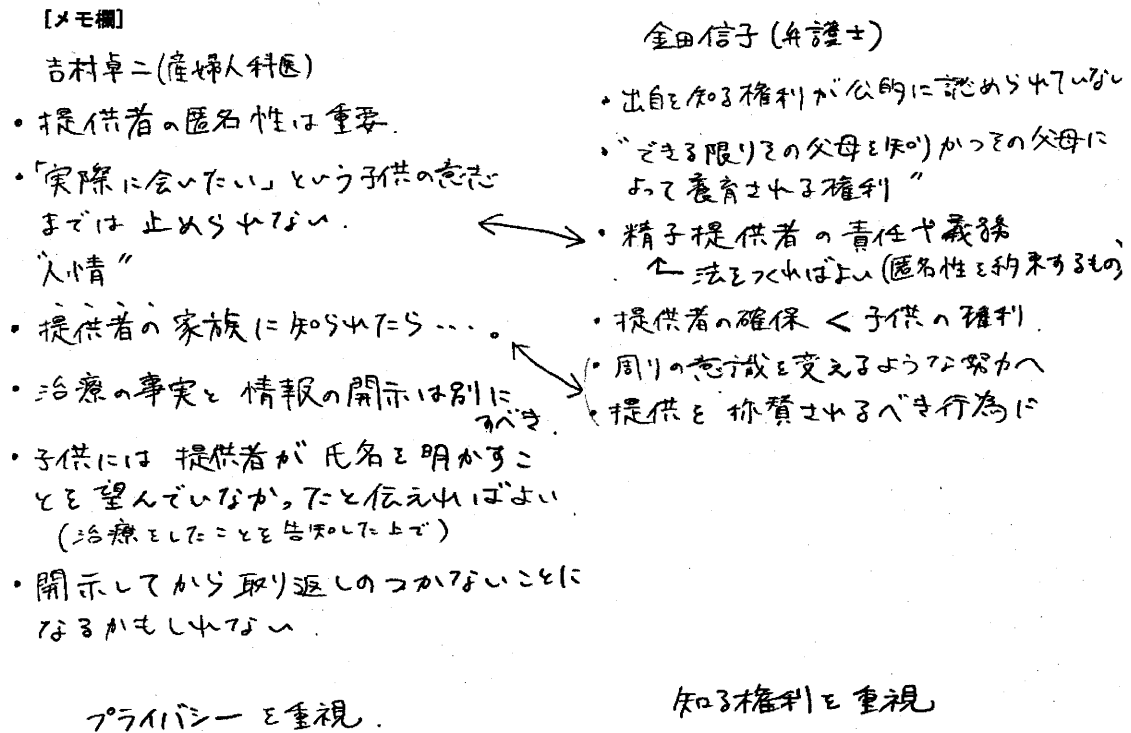 [メモ欄]
吉村卓二(産婦人科医)
・提供者の匿名性は重要.
・「実際に会いたい」という子供の意志
までは止められない.
"人情"
・提供者の家族に知られたら…。
・治療の事実と情報の開示は別に
すべき.
・子供には提供者が氏名を明かすこ
とを望んでいなかったと伝えればよい
(治療をしたことを告知した上で)
・開示してから取り返しのつかないことに
なるかもしれない.
プライバシーを重視.
金田信子(弁護士)
・出自を知る権利が公的に認められていない
・"できる限りその父母を知りかつその父母に
よって養育される権利"
・精子提供者の責任や義務
↑法をつくればよい(匿名性を約束するもの)
・提供者の確保 < 子供の権利.
・周りの意識を変えるような努力へ
・提供を称賛されるべき行為に
知る権利を重視